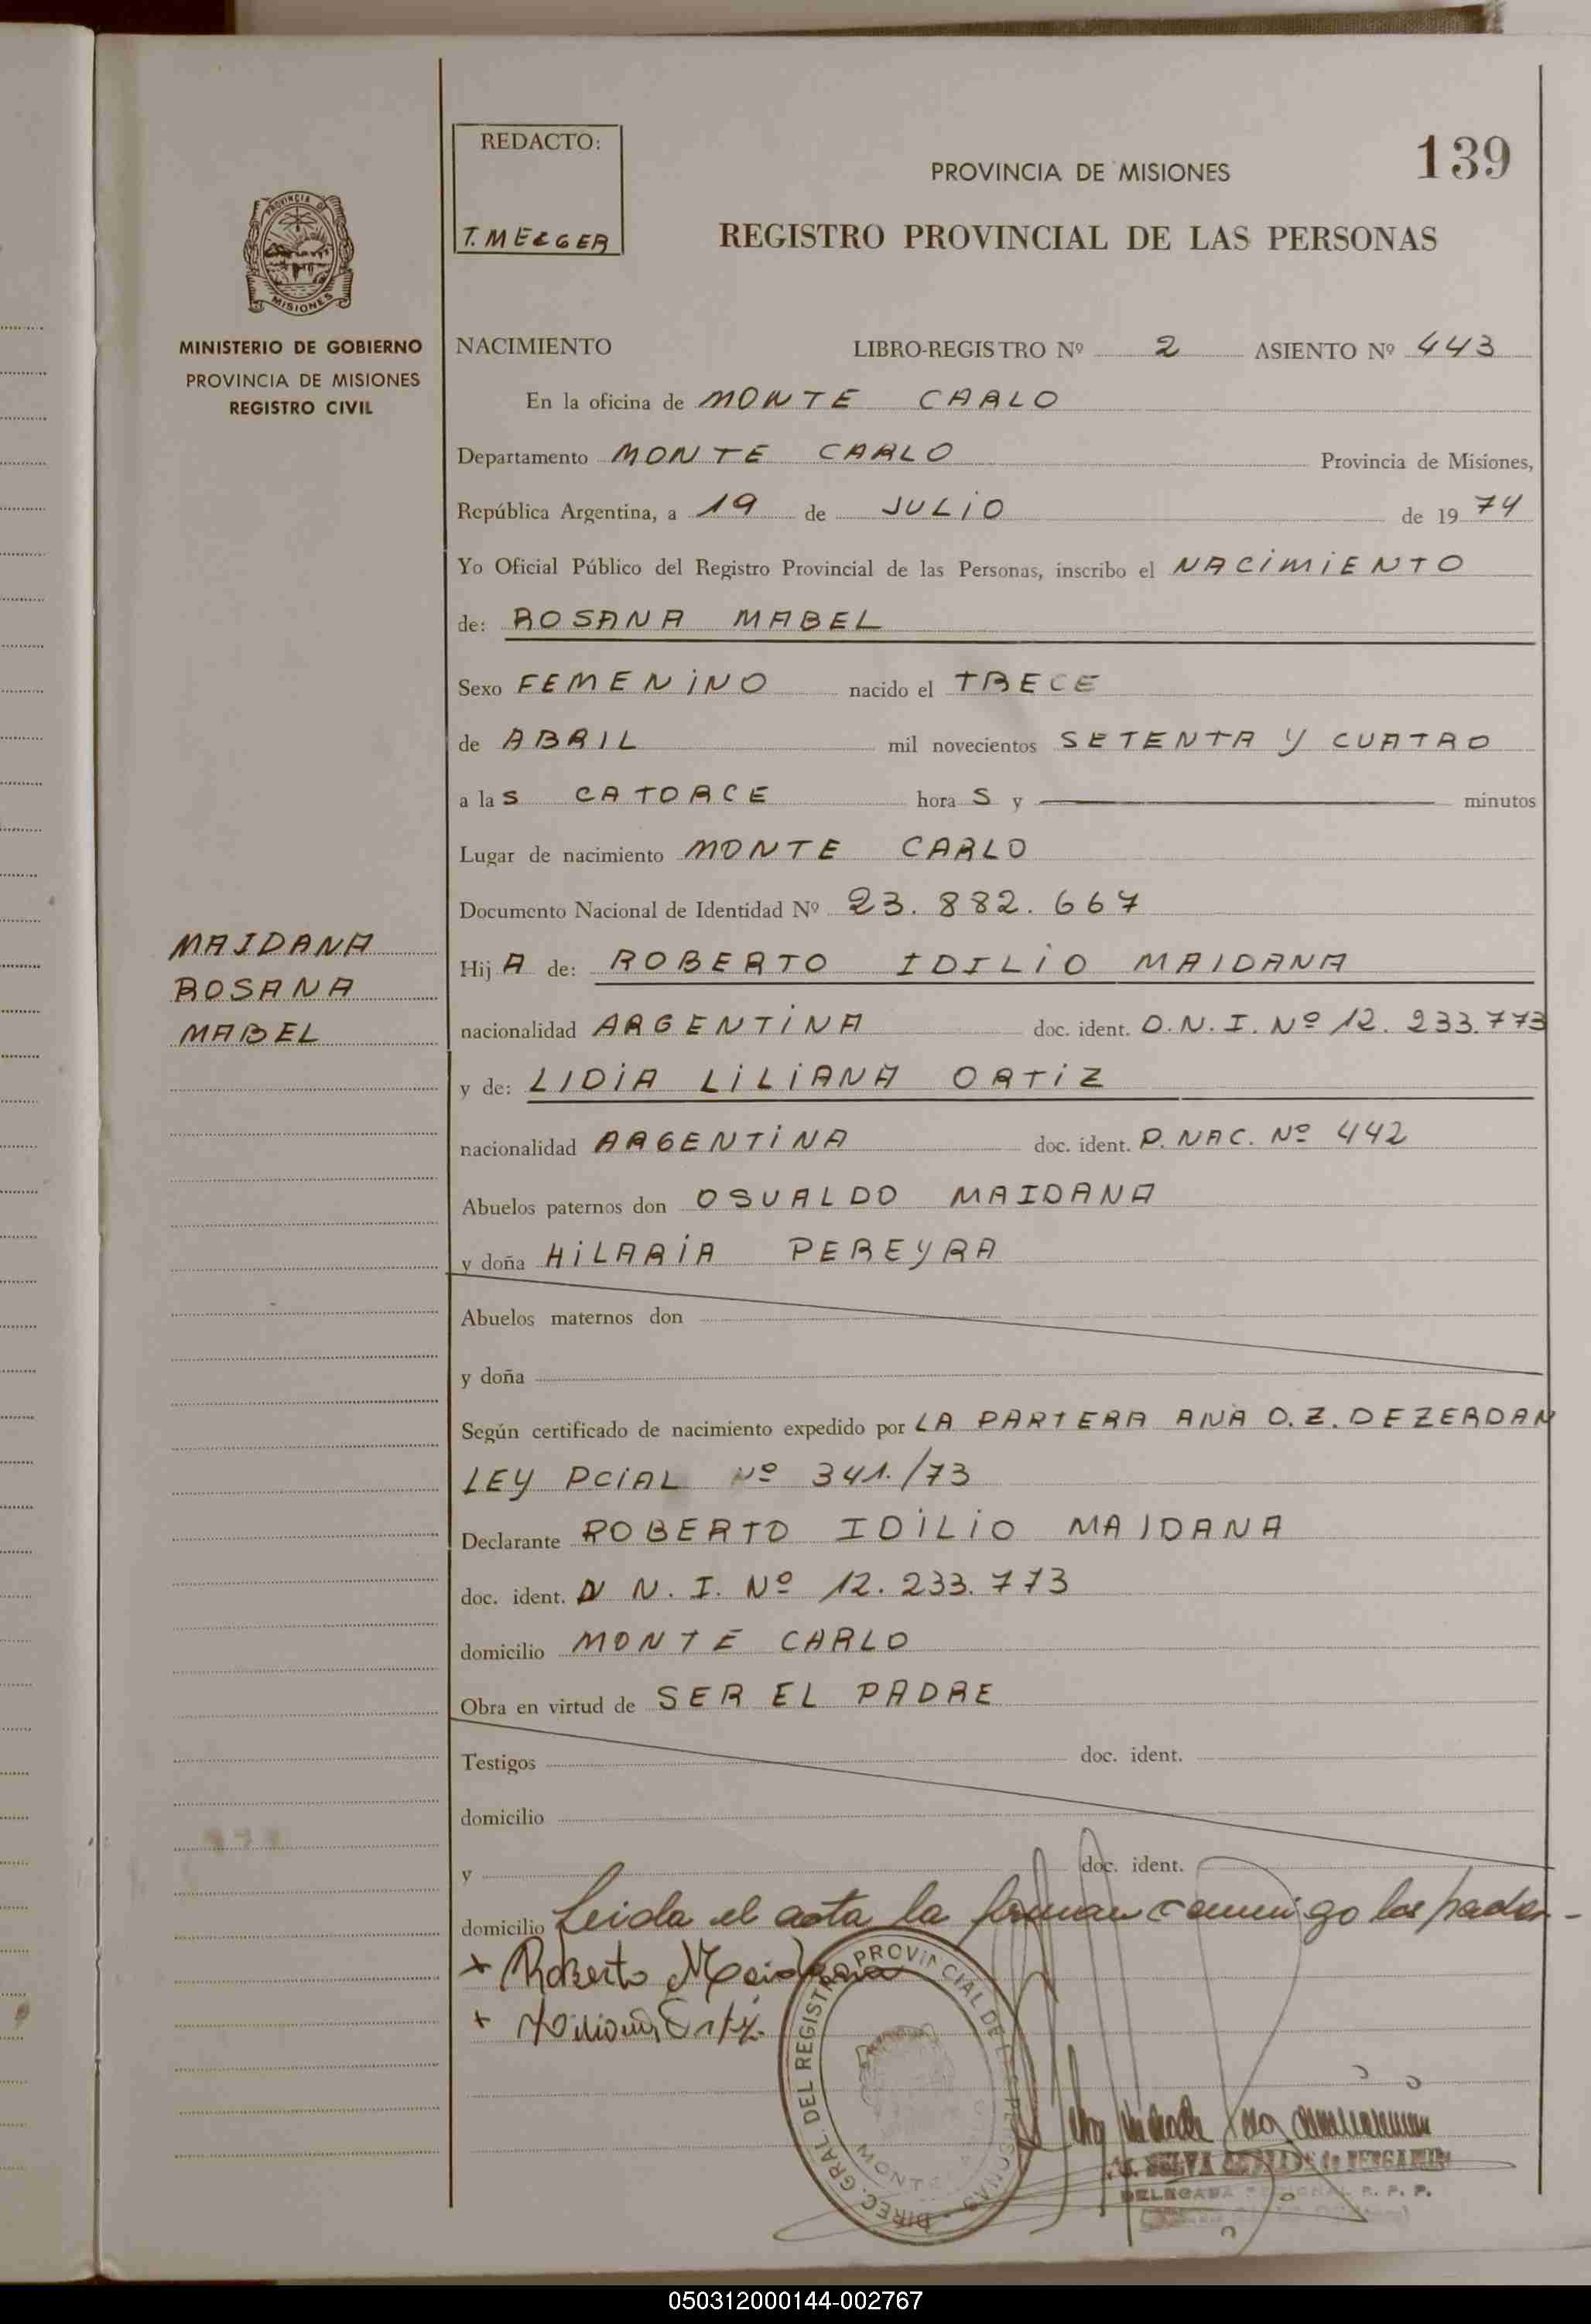 REDACTO:
T. MELGER
139
PROVINCIA DE MISIONES
REGISTRO PROVINCIAL DE LAS PERSONAS
PROVINCIA DE
MISIONES
MINISTERIO DE GOBIERNO
PROVINCIA DE MISIONES
REGISTRO CIVIL
NACIMIENTO LIBRO-REGISTRO Nº 2 ASIENTO Nº 443
En la oficina de MONTE CARLO
Departamento MONTE CARLO Provincia de Misiones,
República Argentina, a 19 de JULIO de 19 74
Yo Oficial Público del Registro Provincial de las Personas, inscribo el NACIMIENTO
de: ROSANA MABEL
Sexo FEMENINO nacido el TRECE
de ABRIL mil novecientos SETENTA Y CUATRO
a las CATORCE horas y minutos
Lugar de nacimiento MONTE CARLO
Documento Nacional de Identidad Nº 23.882.667
MAIDANA
ROSANA
MABEL
Hij A de: ROBERTO IDILIO MAIDANA
nacionalidad ARGENTINA doc. ident. D.N.I. Nº 12.233.773
y de: LIDIA LILIANA ORTIZ
nacionalidad ARGENTINA doc. ident. P. NAC. Nº 442
Abuelos paternos don OSVALDO MAIDANA
y doña HILARIA PEREYRA
Abuelos maternos don
y doña
Según certificado de nacimiento expedido por LA PARTERA ANA O.Z. DEZERDAN
LEY PCIAL Nº 341./73
Declarante ROBERTO IDILIO MAIDANA
doc. ident. D N.I. Nº 12.233.773
domicilio MONTE CARLO
Obra en virtud de SER EL PADRE
Testigos doc. ident.
domicilio
y doc. ident.
domicilio Leida el acta la firman conmigo los padres -
+ Roberto Maidana
+ Liliana Ortiz.
DIREC. GRAL. DEL REGISTRO PROVINCIAL DE LAS PERSONAS
MONTE
SELVA de
DELEGADA REGIONAL R. P. P.
050312000144-002767